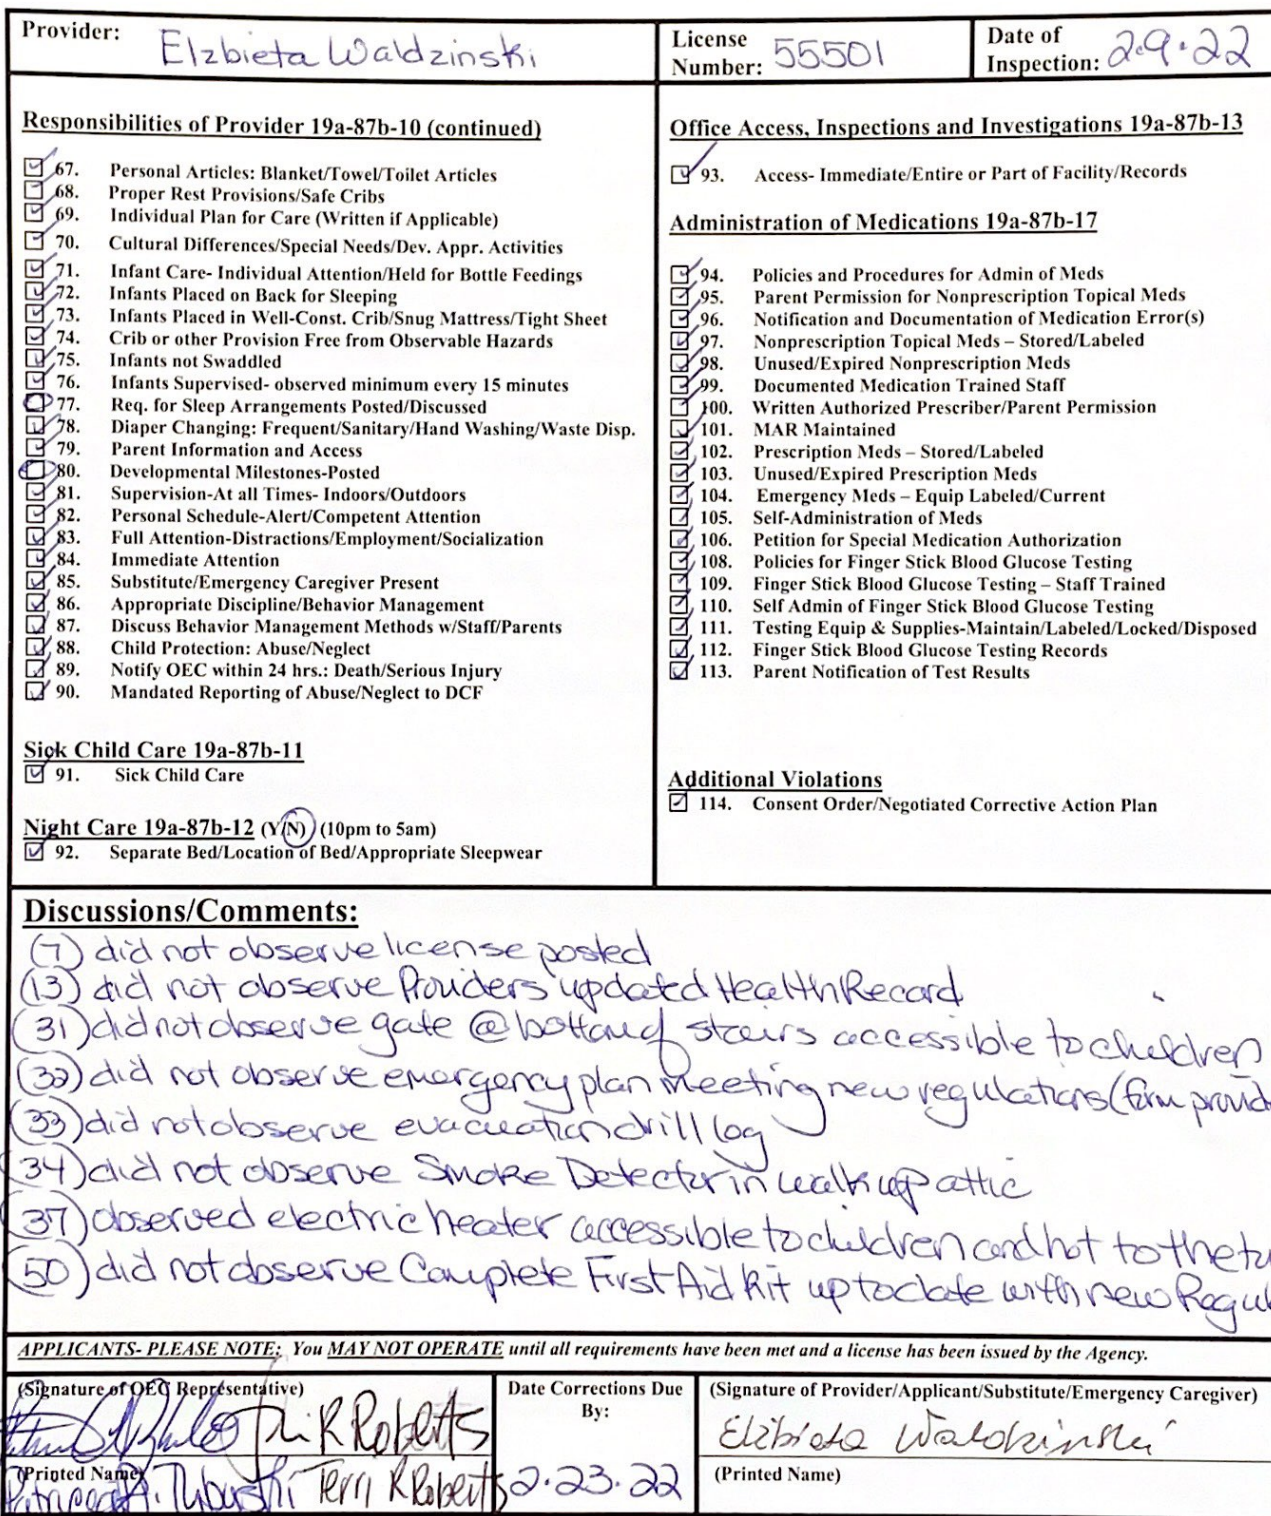 Provider: Elzbieta Waldzinski
License Number: 55501
Date of Inspection: 2.9.22
Responsibilities of Provider 19a-87b-10 (continued)
67. Personal Articles: Blanket/Towel/Toilet Articles
68. Proper Rest Provisions/Safe Cribs
69. Individual Plan for Care (Written if Applicable)
70. Cultural Differences/Special Needs/Dev. Appr. Activities
71. Infant Care- Individual Attention/Held for Bottle Feedings
72. Infants Placed on Back for Sleeping
73. Infants Placed in Well-Const. Crib/Snug Mattress/Tight Sheet
74. Crib or other Provision Free from Observable Hazards
75. Infants not Swaddled
76. Infants Supervised- observed minimum every 15 minutes
77. Req. for Sleep Arrangements Posted/Discussed
78. Diaper Changing: Frequent/Sanitary/Hand Washing/Waste Disp.
79. Parent Information and Access
80. Developmental Milestones-Posted
81. Supervision-At all Times- Indoors/Outdoors
82. Personal Schedule-Alert/Competent Attention
83. Full Attention-Distractions/Employment/Socialization
84. Immediate Attention
85. Substitute/Emergency Caregiver Present
86. Appropriate Discipline/Behavior Management
87. Discuss Behavior Management Methods w/Staff/Parents
88. Child Protection: Abuse/Neglect
89. Notify OEC within 24 hrs.: Death/Serious Injury
90. Mandated Reporting of Abuse/Neglect to DCF
Sick Child Care 19a-87b-11
91. Sick Child Care
Night Care 19a-87b-12 (Y/N) (10pm to 5am)
92. Separate Bed/Location of Bed/Appropriate Sleepwear
Office Access, Inspections and Investigations 19a-87b-13
93. Access- Immediate/Entire or Part of Facility/Records
Administration of Medications 19a-87b-17
94. Policies and Procedures for Admin of Meds
95. Parent Permission for Nonprescription Topical Meds
96. Notification and Documentation of Medication Error(s)
97. Nonprescription Topical Meds – Stored/Labeled
98. Unused/Expired Nonprescription Meds
99. Documented Medication Trained Staff
100. Written Authorized Prescriber/Parent Permission
101. MAR Maintained
102. Prescription Meds – Stored/Labeled
103. Unused/Expired Prescription Meds
104. Emergency Meds – Equip Labeled/Current
105. Self-Administration of Meds
106. Petition for Special Medication Authorization
108. Policies for Finger Stick Blood Glucose Testing
109. Finger Stick Blood Glucose Testing – Staff Trained
110. Self Admin of Finger Stick Blood Glucose Testing
111. Testing Equip & Supplies-Maintain/Labeled/Locked/Disposed
112. Finger Stick Blood Glucose Testing Records
113. Parent Notification of Test Results
Additional Violations
114. Consent Order/Negotiated Corrective Action Plan
Discussions/Comments:
(7) did not observe license posted
(13) did not observe Providers updated Health Record
(31) did not observe gate @ bottom of stairs accessible to children
(32) did not observe emergency plan meeting new regulations (form provid
(33) did not observe evacuation drill log
(34) did not observe Smoke Detector in walk up attic
(37) observed electric heater accessible to children and hot to the tu
(50) did not observe Complete First Aid Kit up to date with new Regul
APPLICANTS- PLEASE NOTE: You MAY NOT OPERATE until all requirements have been met and a license has been issued by the Agency.
(Signature of OEC Representative)
K Roberts
(Printed Name)
Terri K Roberts
Date Corrections Due By:
2.23.22
(Signature of Provider/Applicant/Substitute/Emergency Caregiver)
Elzbieta Waldzinski
(Printed Name)